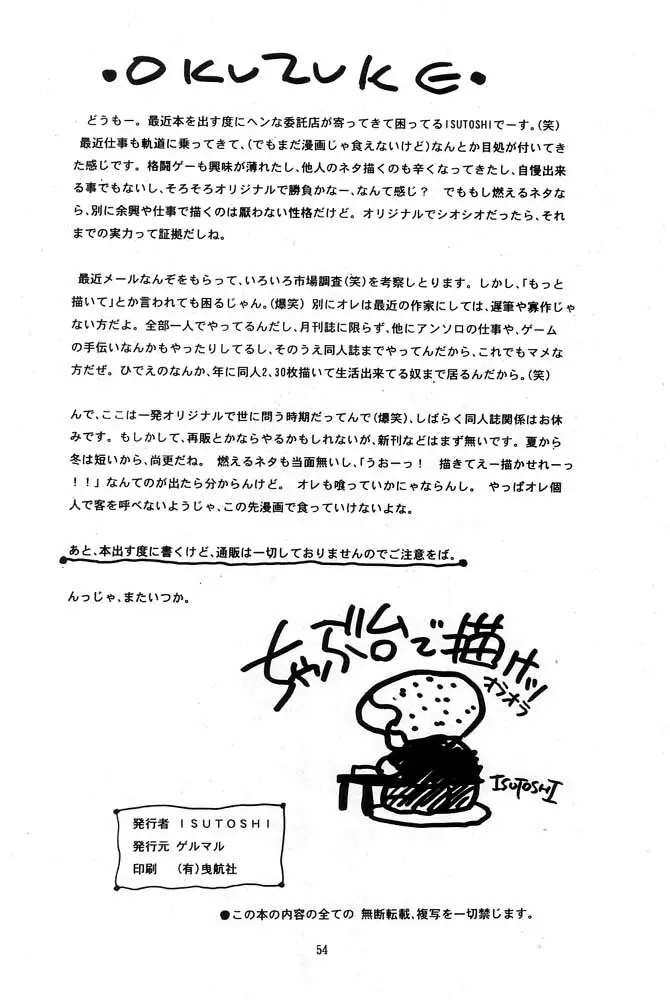 •OKUZUKE•
どうもー。最近本を出す度にヘンな委託店が寄ってきて困ってるISUTOSHIでーす。(笑)
最近仕事も軌道に乗ってきて、(でもまだ漫画じゃ食えないけど)なんとか目処が付いてき
た感じです。格闘ゲーも興味が薄れたし、他人のネタ描くのも辛くなってきたし、自慢出来
る事でもないし、そろそろオリジナルで勝負かなー、なんて感じ？　でももし燃えるネタな
ら、別に余興や仕事で描くのは厭わない性格だけど。オリジナルでシオシオだったら、それ
までの実力って証拠だしね。
最近メールなんぞをもらって、いろいろ市場調査(笑)を考察しとります。しかし、「もっと
描いて」とか言われても困るじゃん。(爆笑) 別にオレは最近の作家にしては、遅筆や寡作じゃ
ない方だよ。全部一人でやってるんだし、月刊誌に限らず、他にアンソロの仕事や、ゲーム
の手伝いなんかもやったりしてるし、そのうえ同人誌までやってんだから、これでもマメな
方だぜ。ひでえのなんか、年に同人2、30枚描いて生活出来てる奴まで居るんだから。(笑)
んで、ここは一発オリジナルで世に問う時期だってんで(爆笑)、しばらく同人誌関係はお休
みです。もしかして、再販とかならやるかもしれないが、新刊などはまず無いです。夏から
冬は短いから、尚更だね。　燃えるネタも当面無いし、「うおーっ！　描きてえー描かせれーっ
！！」なんてのが出たら分からんけど。　オレも喰っていかにゃならんし。　やっぱオレ個
人で客を呼べないようじゃ、この先漫画で食っていけないよな。
あと、本出す度に書くけど、通販は一切しておりませんのでご注意をば。
んっじゃ、またいつか。
ちゃぶ台で描けッ!
オラオラ
ISUTOSHI
発行者　ISUTOSHI
発行元　ゲルマル
印刷　(有)曳航社
●この本の内容の全ての 無断転載、複写を一切禁じます。
54